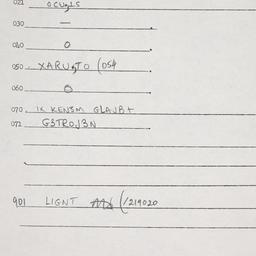 021 OCULIS
030 —
040 O
050 XARUSTO (054
060 O
070 IK KENSM GLAJB+
072 G3TROJ3N
901 LIGNT (1219020